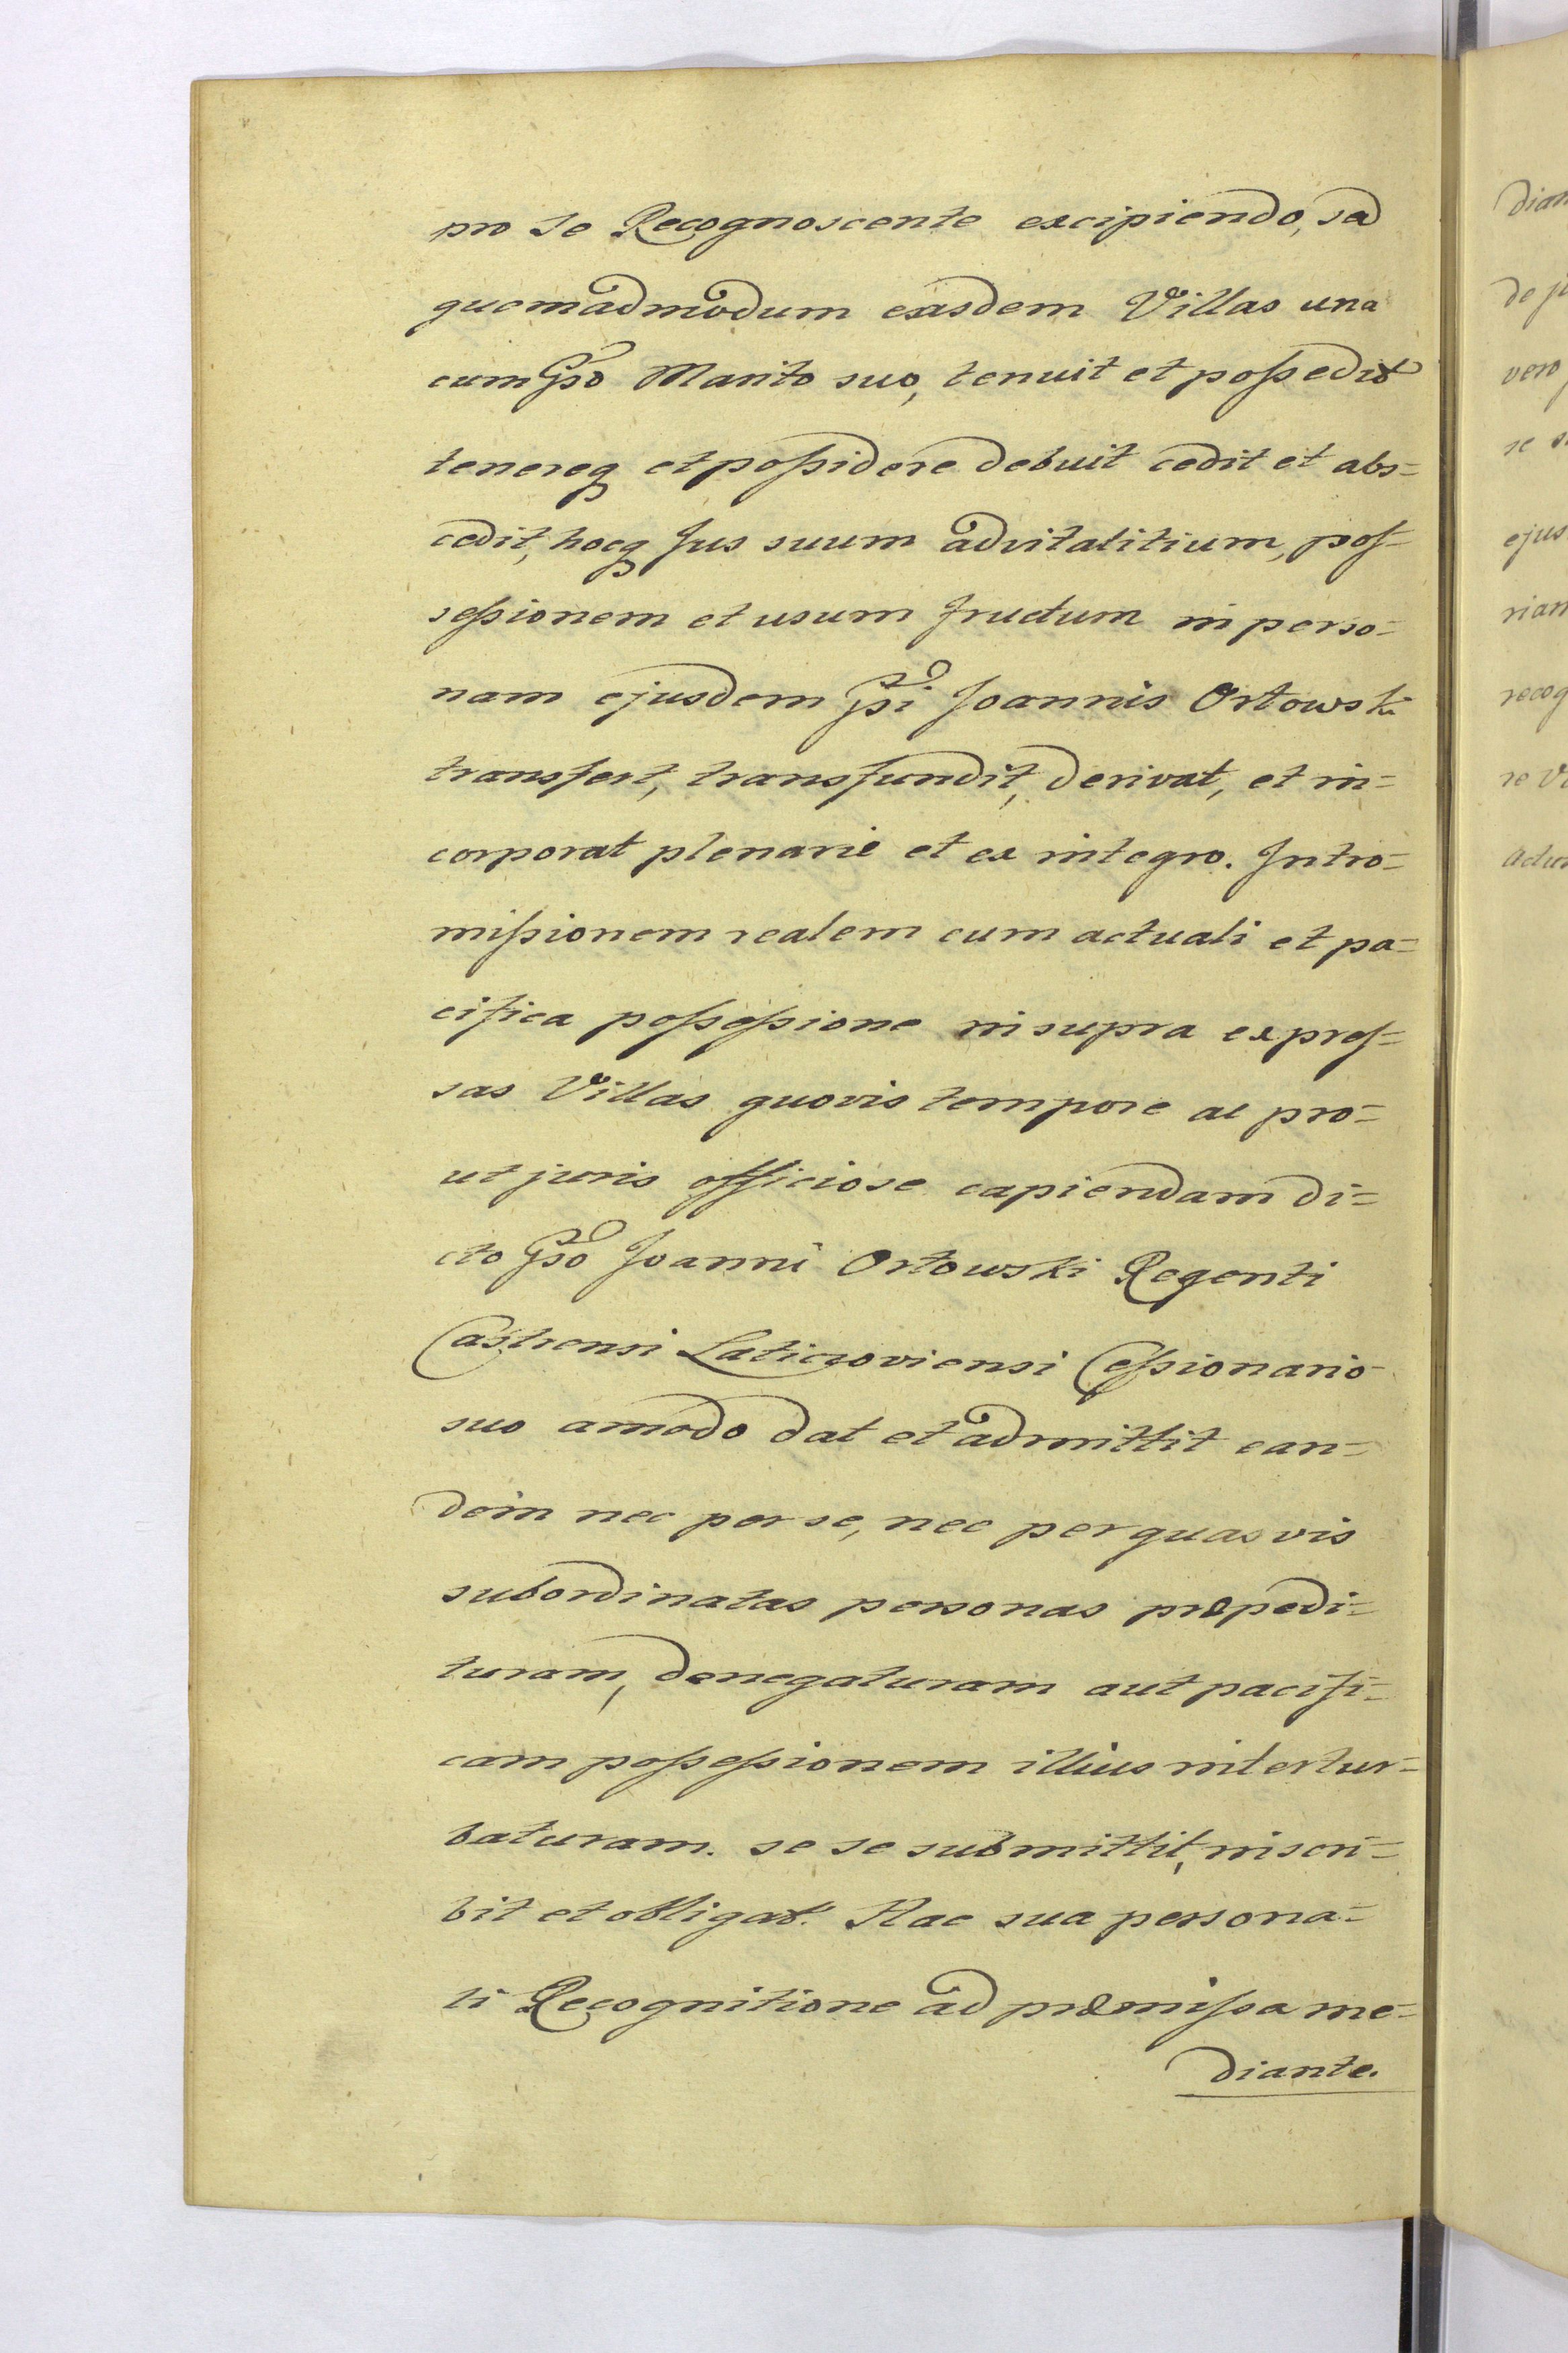 pro se Recognoscente excipiendo, sed
quemadmodum easdem Villas una
cum Gso Marito suo, tenuit et possedit
tenereq et possidere debuit cedit et abs=
cedit, hocq Jus suum advitalitium, pos=
sessionem et usum fructum in perso=
nam ejusdem Gsi Joannis Orłowski
transfert, transfundit, derivat, et in=
corporat plenarie et ex integro. Intro=
missionem realem cum actuali et pa=
cifica possessione in supra expres=
sas Villas quovis tempore ac pro=
ut juris officiose capiendam di=
cto Gso Joanni Orłowski Regenti
Castrensi Laticzoviensi Cessionario
suo amodo dat et admittit ean=
dem nec per se, nec per quasvis
subordinatas personas præpedi=
turam, denegaturam aut pacifi=
cam possessionem illius intertur=
baturam. se se submittit, inscri=
bit et obligat. Hac sua persona=
li Recognitione ad præmissa me=
diante.
dian
de ju
vero
se s
ejus
rian
recog
re Vi
actu